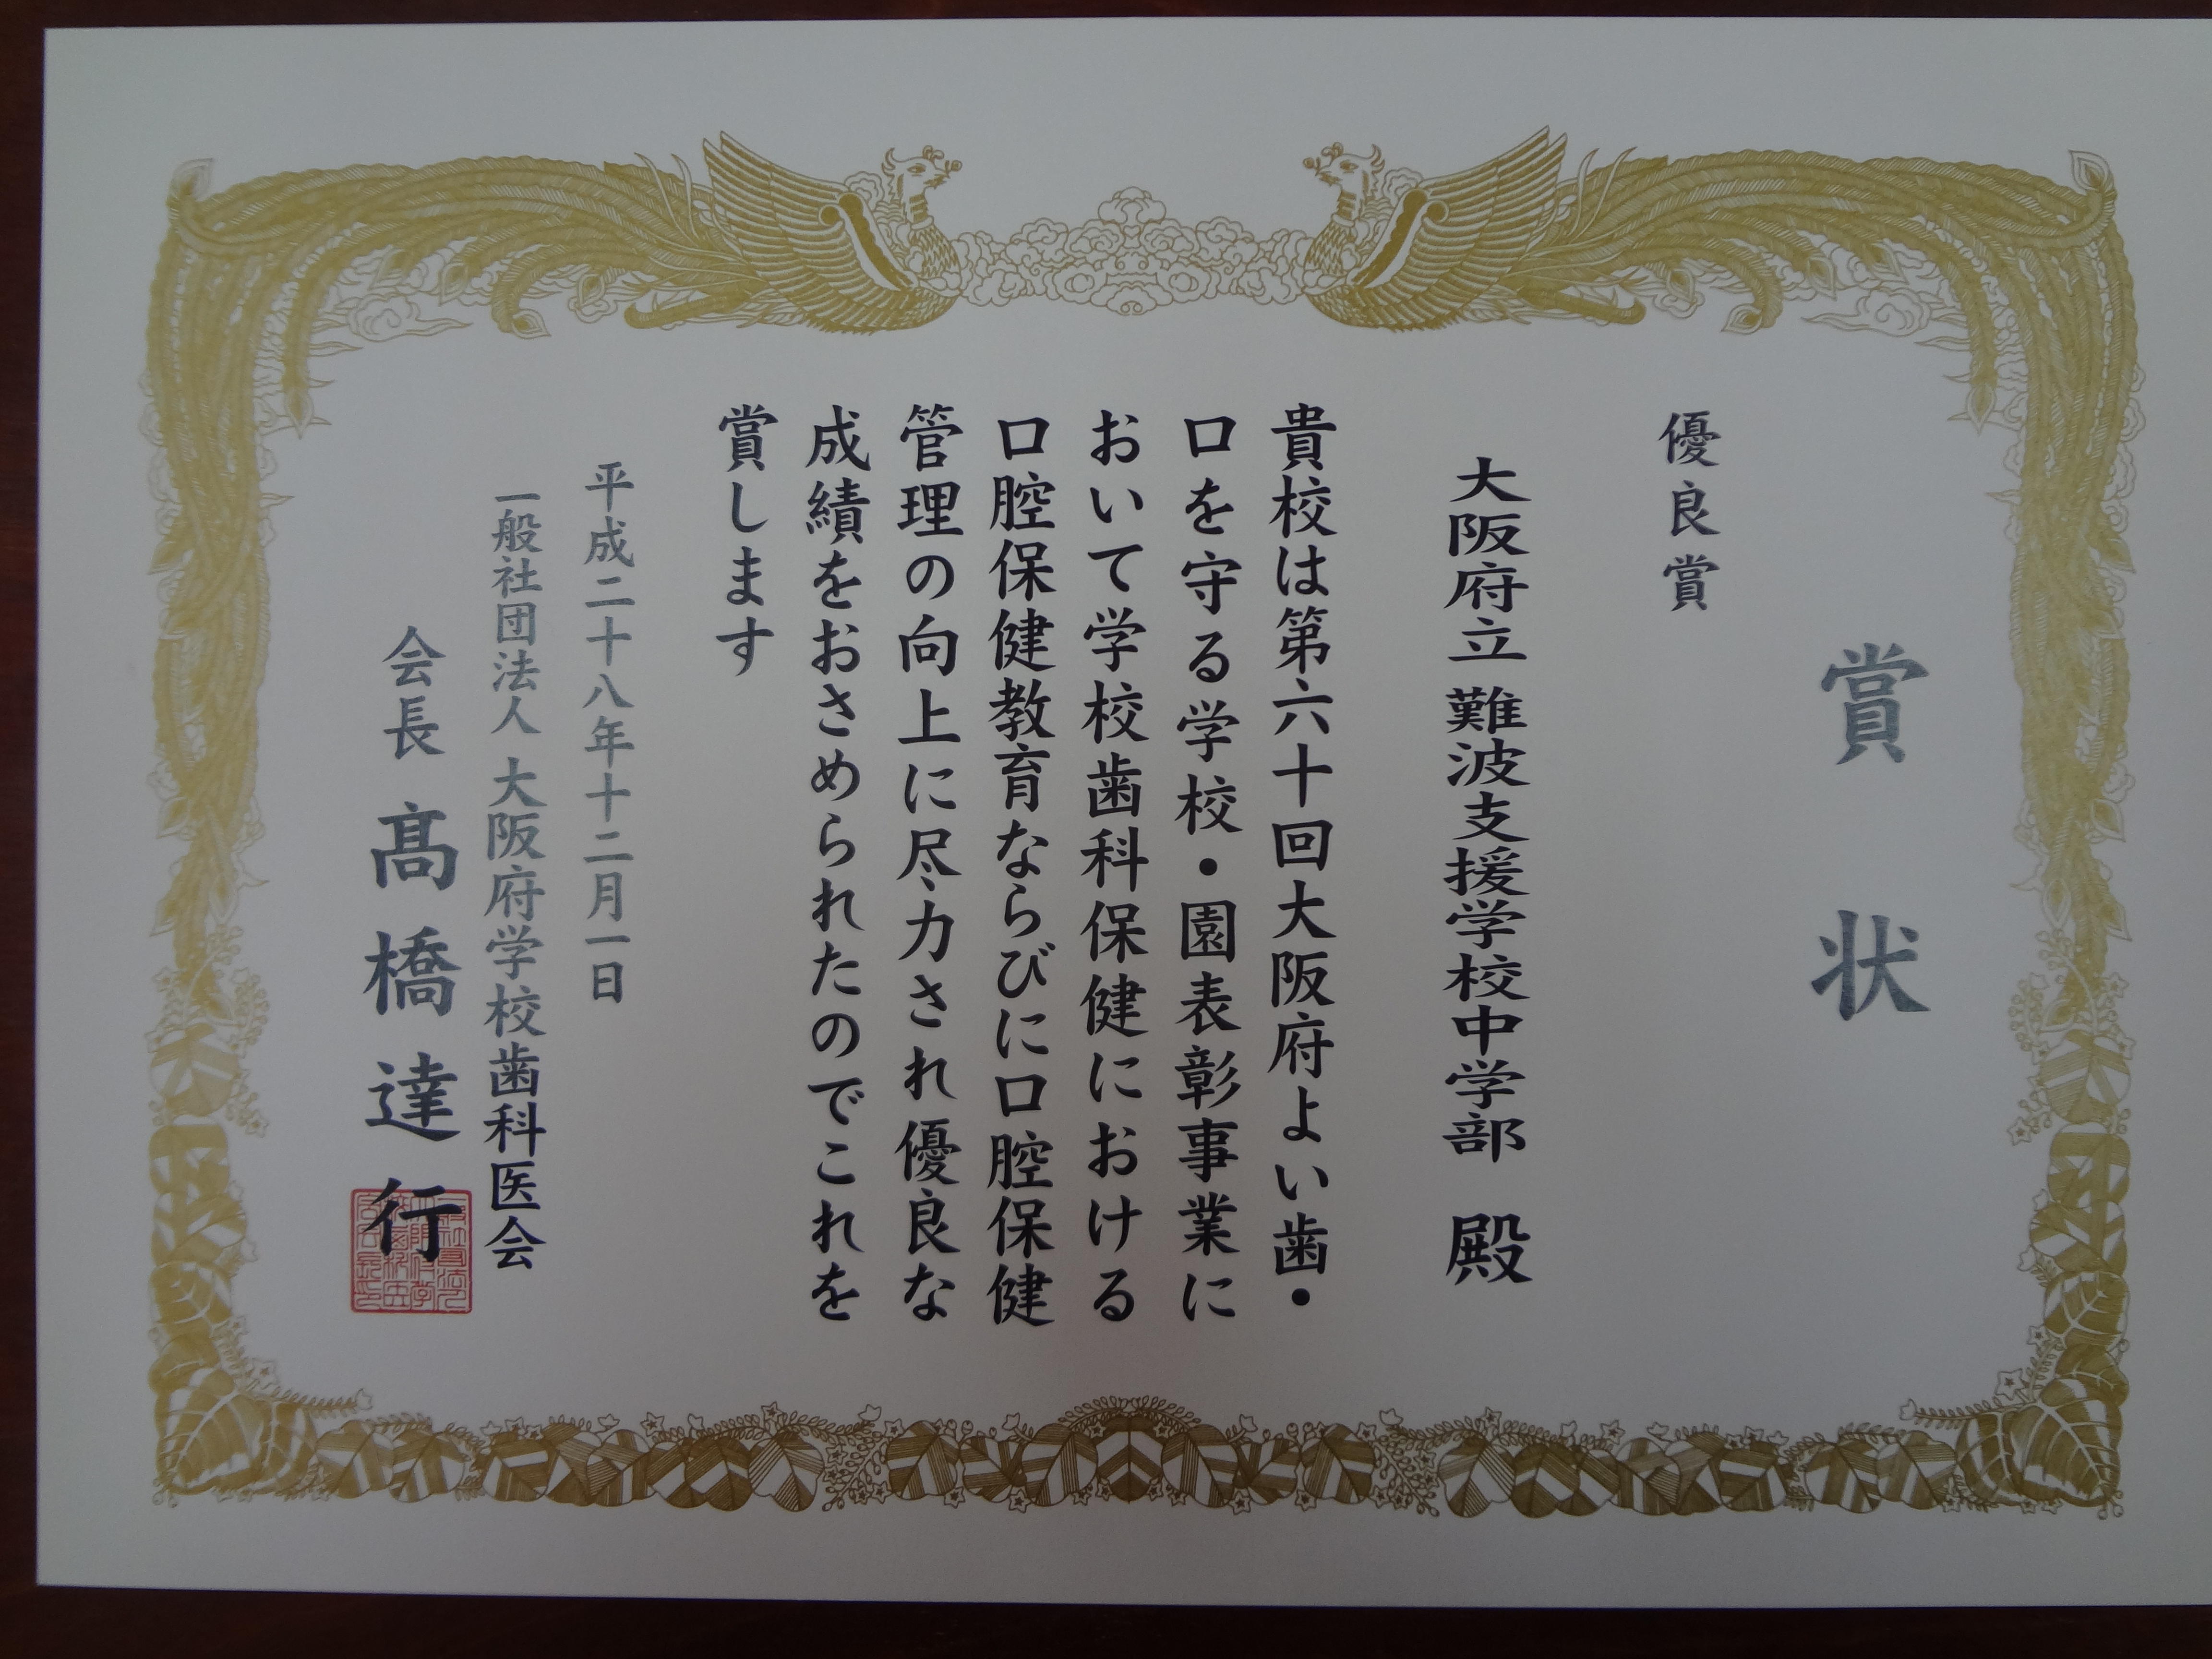 賞状
優良賞
大阪府立 難波支援学校中学部 殿
貴校は第六十回大阪府よい歯・
口を守る学校・園表彰事業に
おいて学校歯科保健における
口腔保健教育ならびに口腔保健
管理の向上に尽力され優良な
成績をおさめられたのでこれを
賞します
平成二十八年十二月一日
一般社団法人 大阪府学校歯科医会
会長 髙橋達行